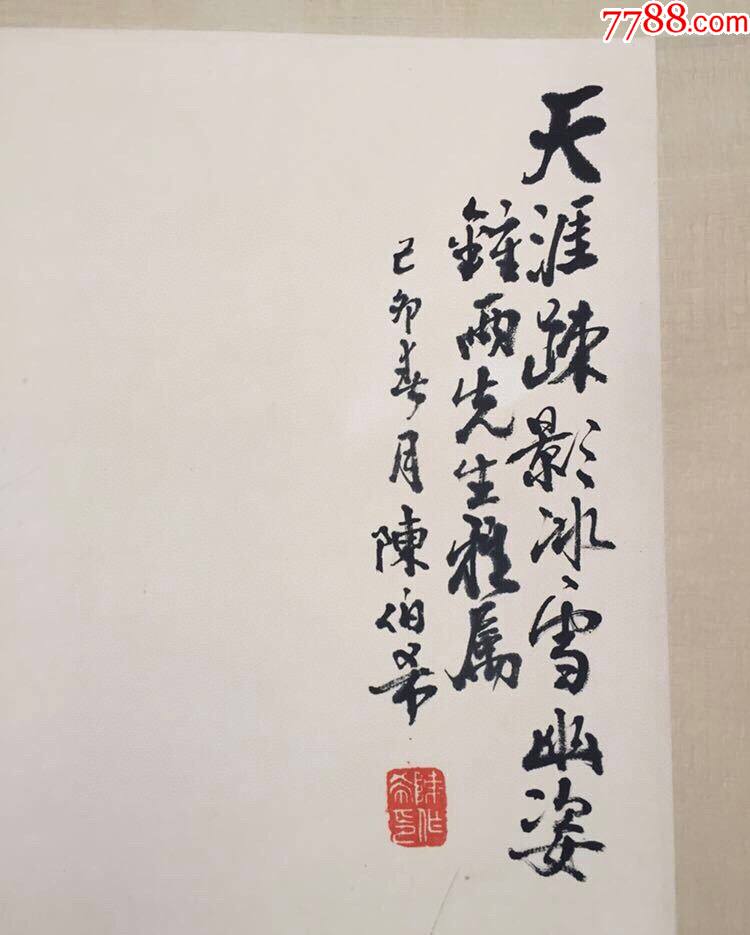 7788.com
天涯疎影冰雪幽姿
鍾兩先生雅属
己卯春月陳伯希
陳伯希印